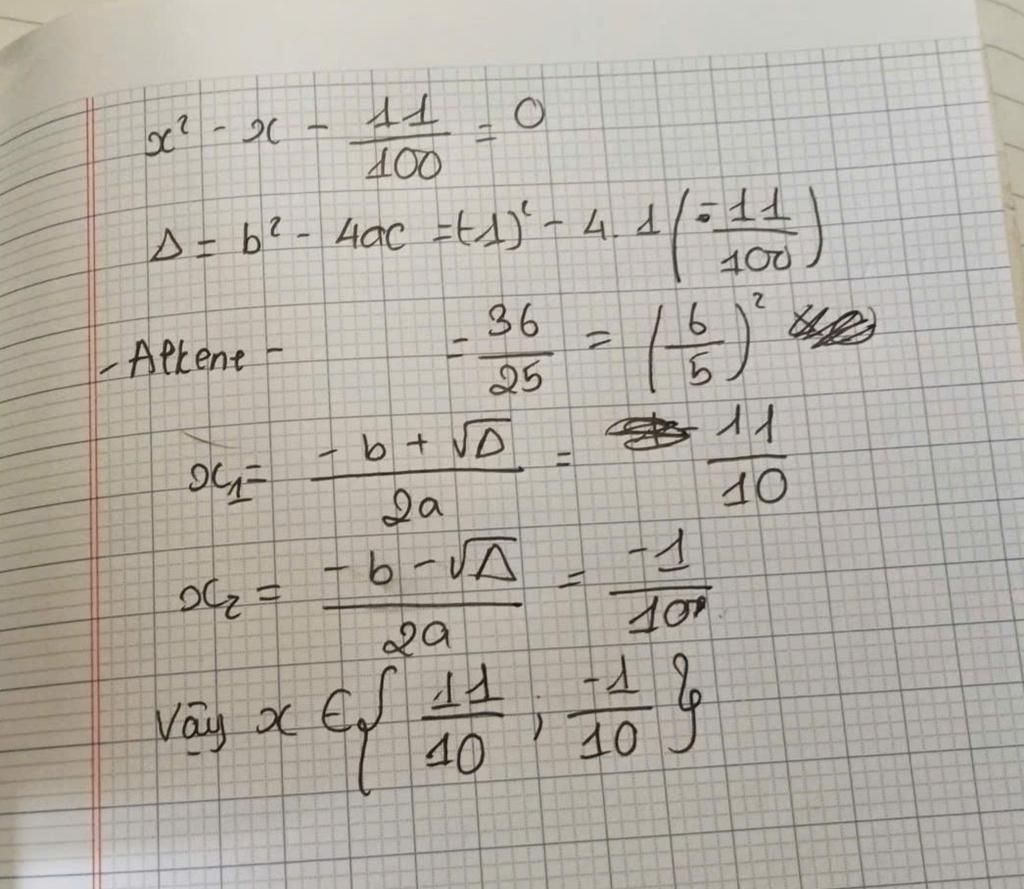 x² - x - 11/100 = 0
Δ = b² - 4ac = (-1)² - 4. 1 (-11/100)
- Alkene - = 36/25 = (6/5)²
x₁ = (-b + √Δ)/2a = 11/10
x₂ = (-b - √Δ)/2a = -1/10
Vậy x ∈ { 11/10 ; -1/10 }